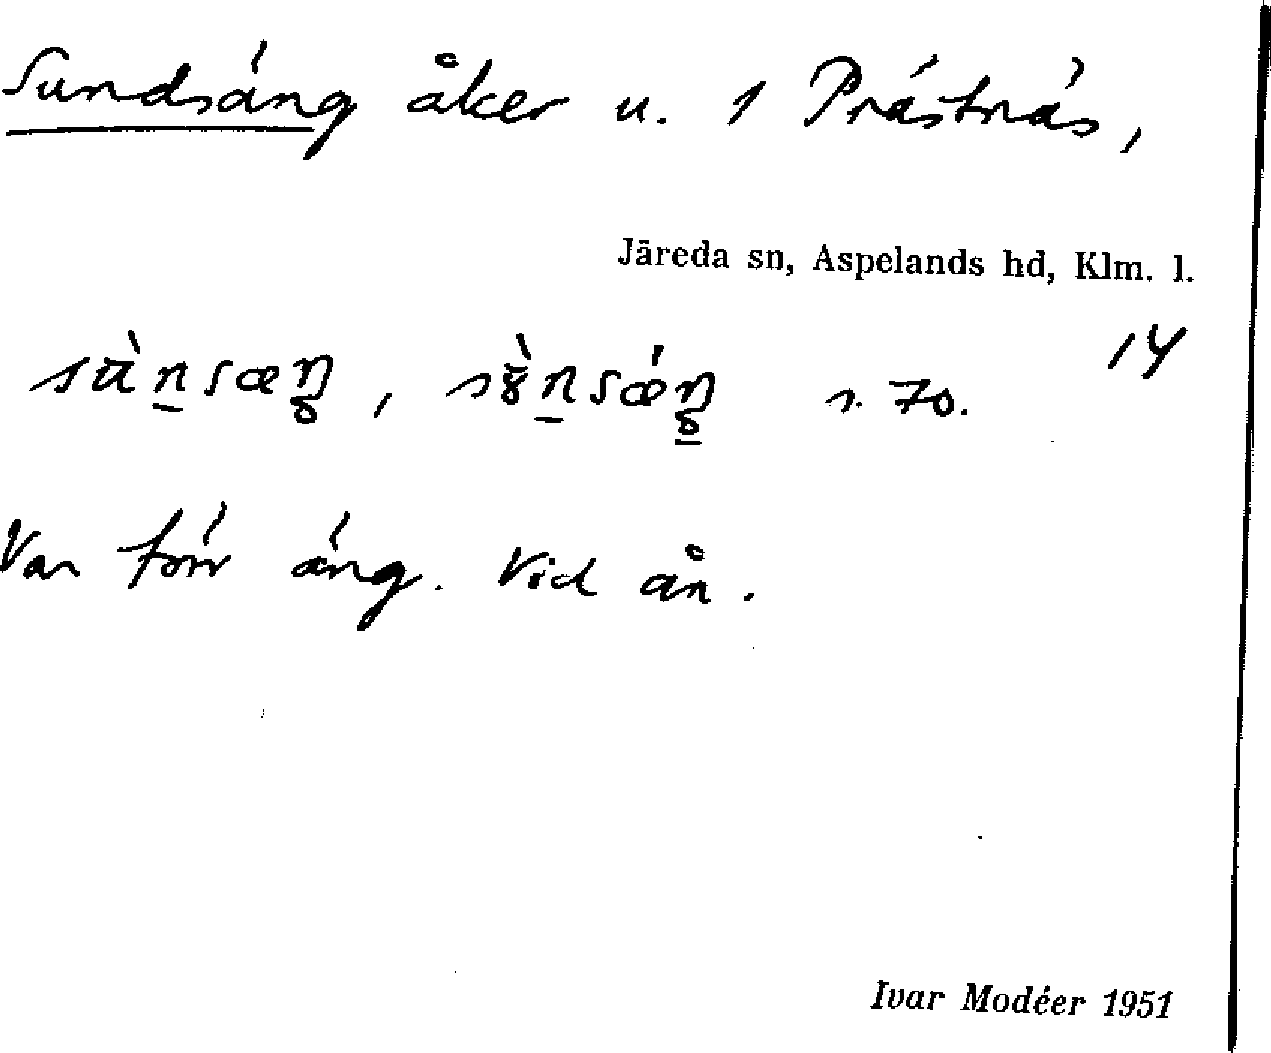 Sundsäng åker u. 1 Prästnäs,
Järeda sn, Aspelands hd, Klm. l.
14
s. 70.
Var förr äng. Vid ån.
Ivar Modéer 1951